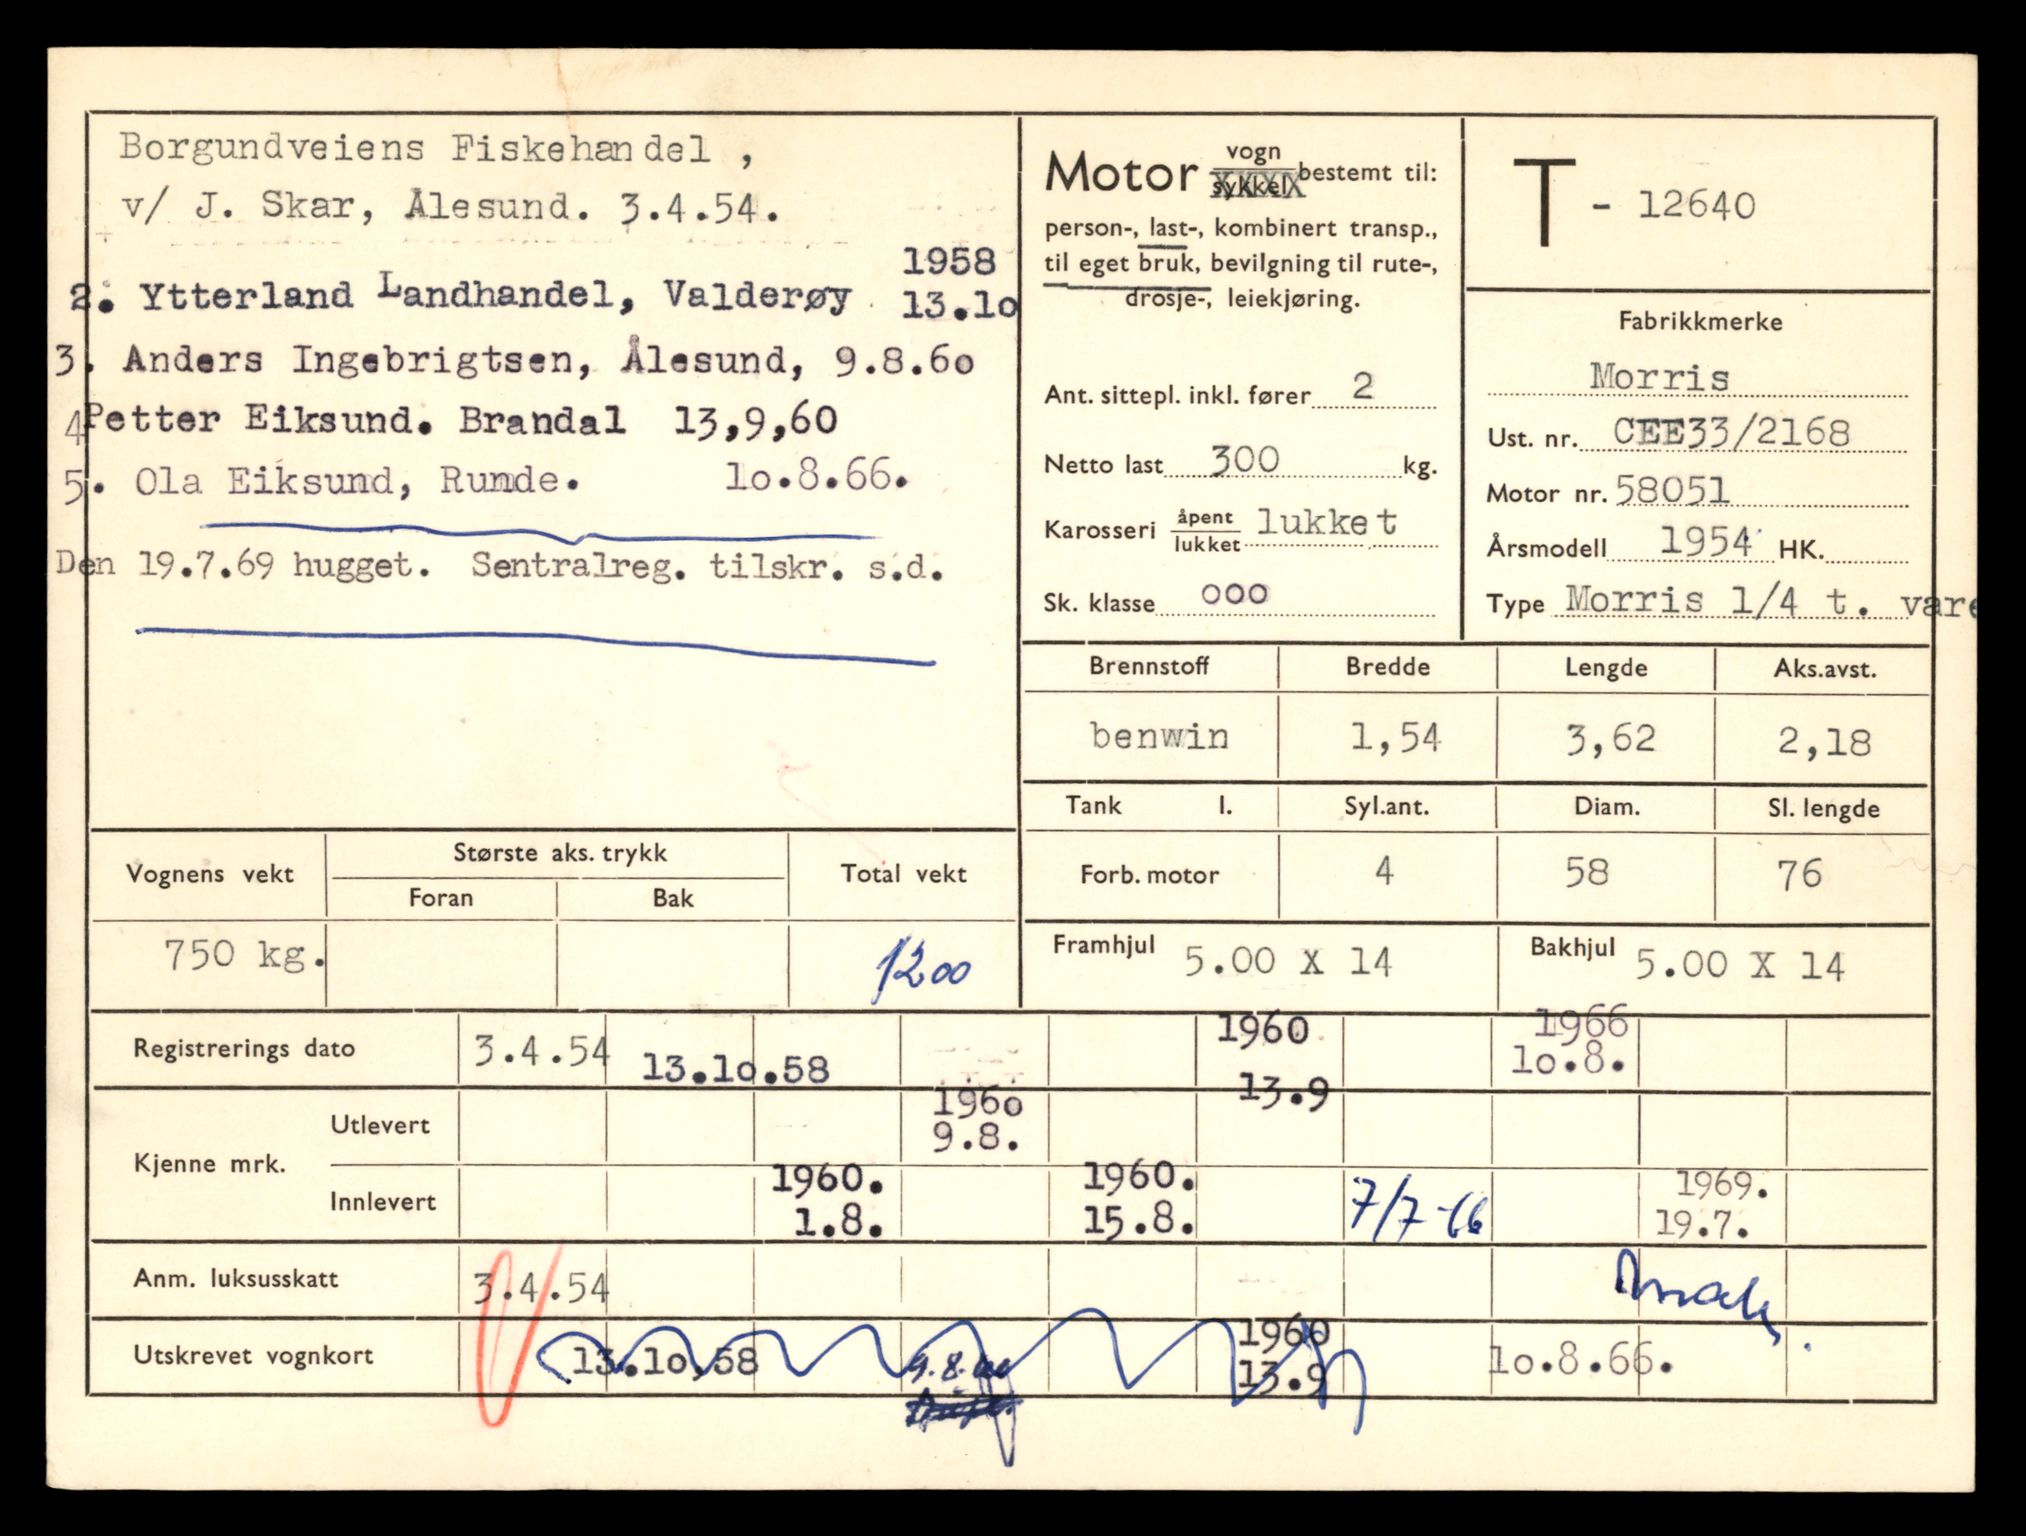 Borgundveiens Fiskehandel ,
v/ J. Skar, Ålesund. 3.4.54.
1958
2. Ytterland Landhandel, Valderøy 13.1o
3. Anders Ingebrigtsen, Ålesund, 9.8.6o
4 Petter Eiksund. Brandal 13,9,60
5. Ola Eiksund, Runde. 1o.8.66.
Den 19.7.69 hugget. Sentralreg. tilskr. s.d.
Motor vogn sykkel bestemt til:
person-, last-, kombinert transp.,
til eget bruk, bevilgning til rute-,
drosje-, leiekjøring.
Ant. sittepl. inkl. fører 2
Netto last 300 kg.
Karosseri åpent lukket lukket
Sk. klasse ooo
T - 12640
Fabrikkmerke
Morris
Ust. nr. CEE33/2168
Motor nr. 58051
Årsmodell 1954 HK.
Type Morris 1/4 t. vare
Brennstoff Bredde Lengde Aks.avst.
benwin 1,54 3,62 2,18
Tank l. Syl.ant. Diam. Sl. lengde
Forb. motor 4 58 76
Framhjul 5.00 X 14 Bakhjul 5.00 X 14
Vognens vekt Største aks. trykk Total vekt
Foran Bak
750 kg. 1200
1960 1966
Registrerings dato 3.4.54 13.1o.58 13.9 1o.8.
Kjenne mrk.
Utlevert 196o 9.8.
Innlevert 1960. 1.8. 1960. 15.8. 7/7-66 1969. 19.7.
Anm. luksusskatt 3.4.54
Utskrevet vognkort 13.1o.58 9.8.60 1960 13.9 1o.8.66.